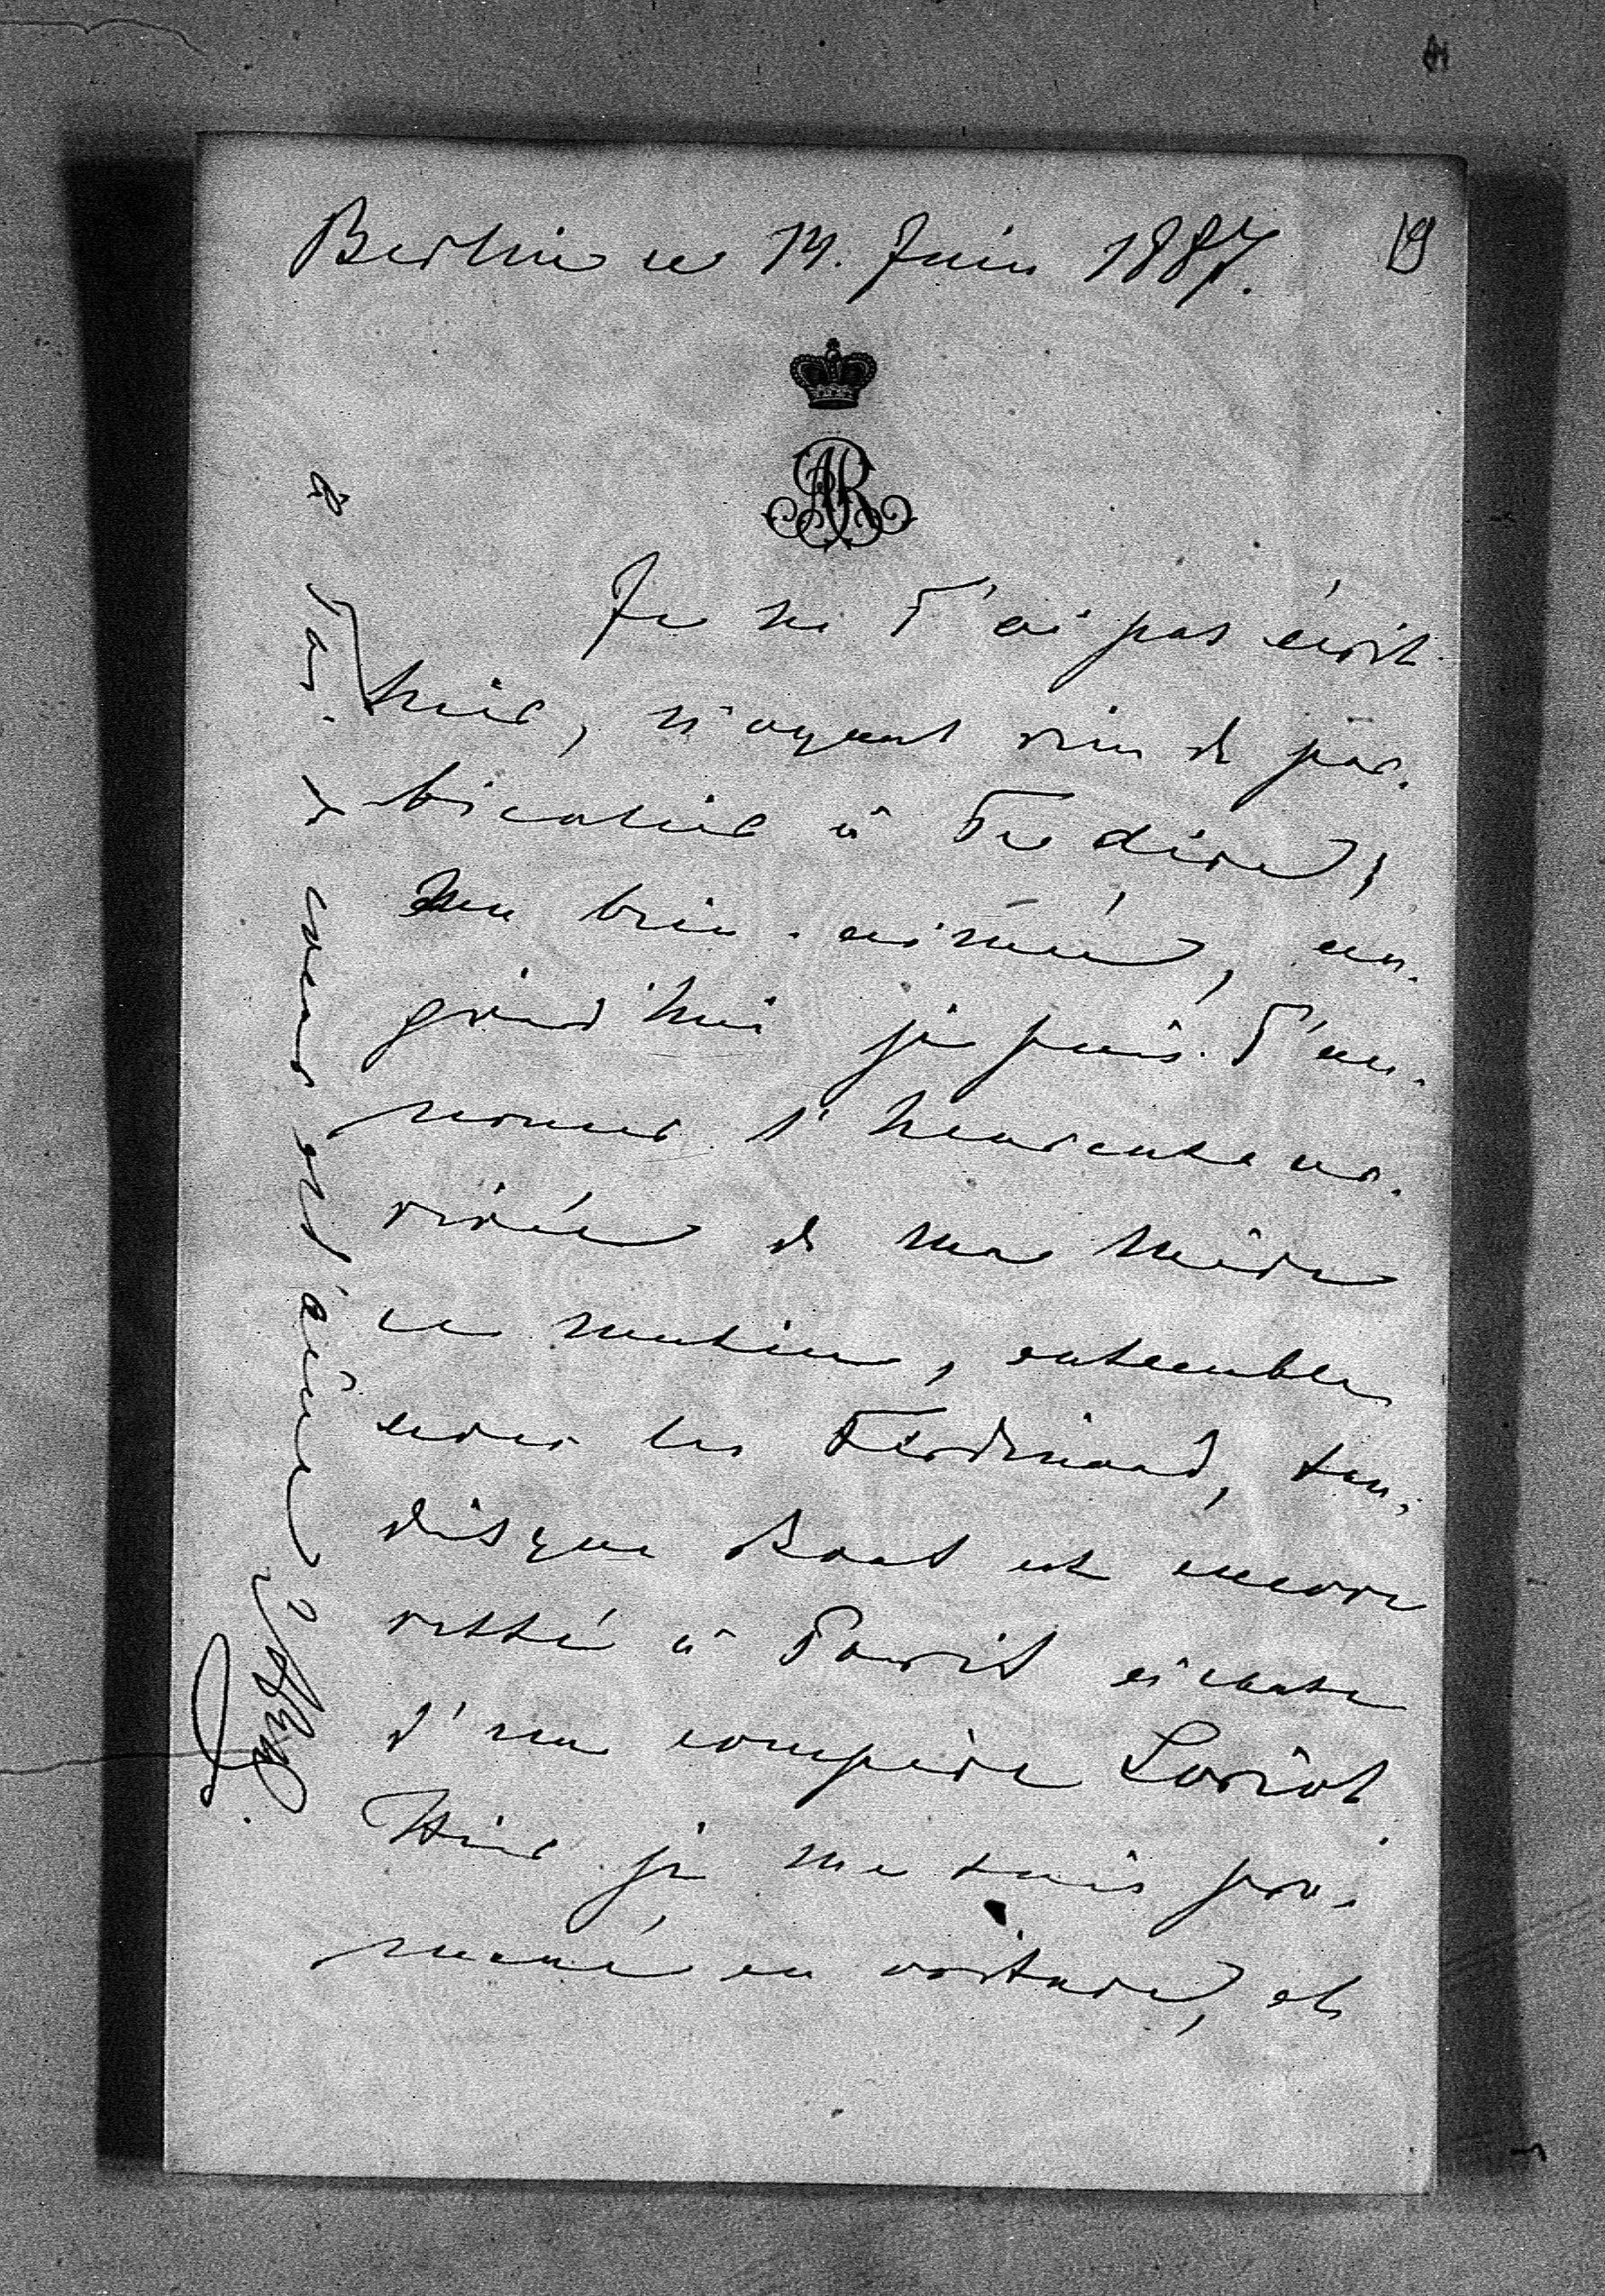 Berlin ce 14. Juin 1887.
19
AR
Je ne T'ai pas écrit
hier, n'ayant rien de par-
ticulier à Te dire,
mon bien-aimé, au-
jourd'hui je puis T'an-
noncer l'heureuse ar-
rivée de ma mère
ce matin, ensemble
avec les Ferdinand, tan-
disque est encore
resté à Paris
d'un compère Loriot.
Hier je me suis pro-
mené en voiture, et